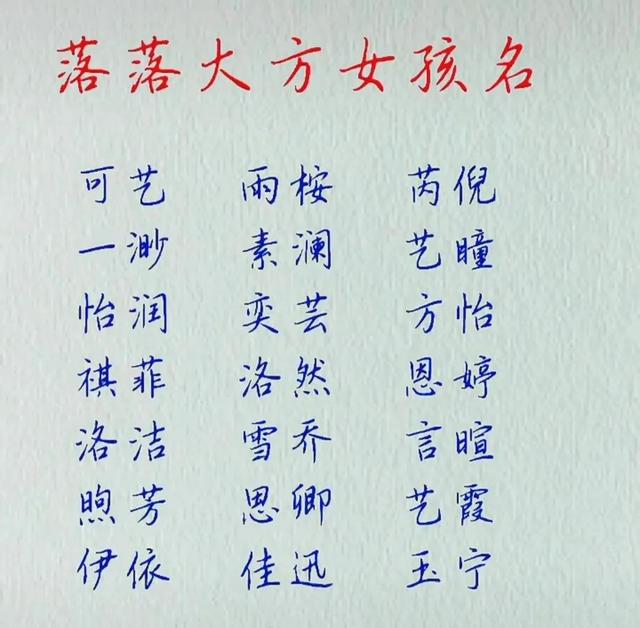 落落大方女孩名
可艺 雨桉 芮倪
一渺 素澜 艺瞳
怡润 奕芸 方怡
祺菲 洛然 恩婷
洛洁 雪乔 言暄
煦芳 恩卿 艺霞
伊依 佳迅 玉宁